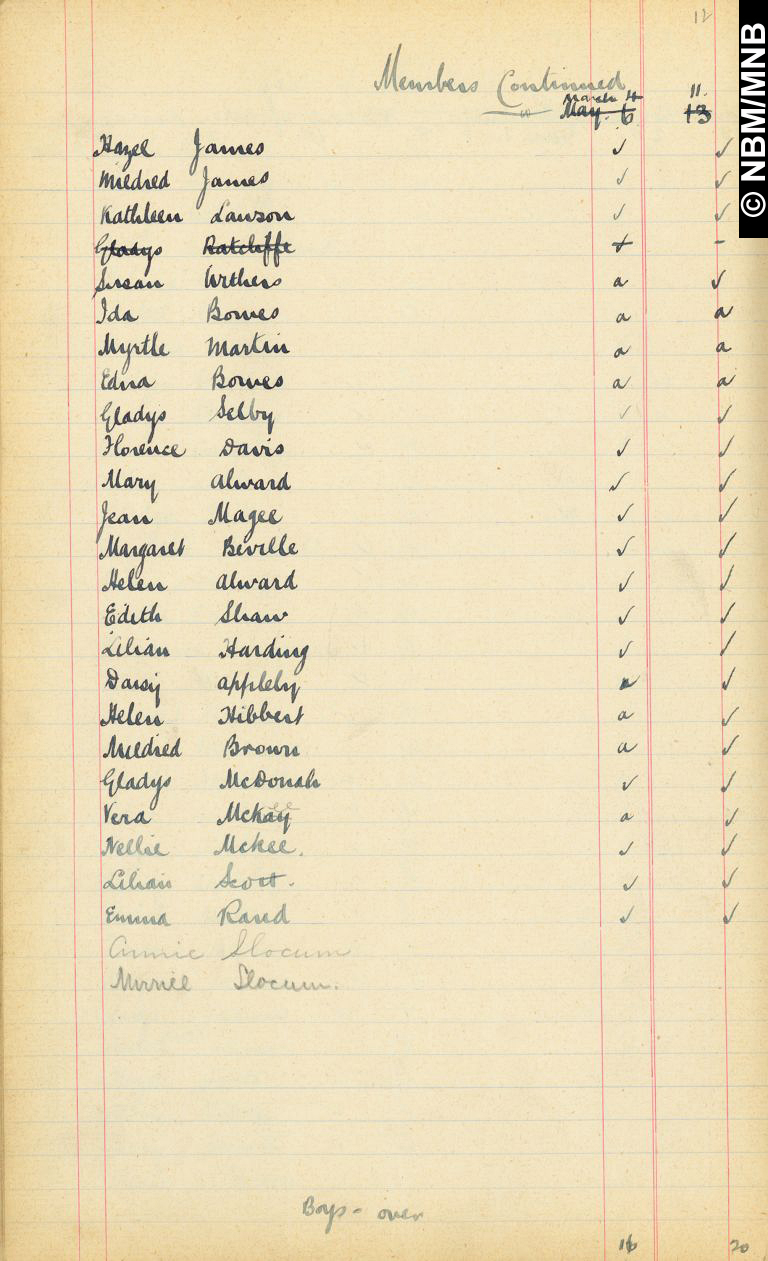 12
© NBM/MNB
Members Continued
March 4 11.
May. 6 13
Hazel James ✓ ✓
Mildred James ✓ ✓
Kathleen Lawson ✓ ✓
Gladys Ratcliffe + -
Susan Withers a ✓
Ida Bowes a a
Myrtle Martin a a
Edna Bowes a a
Gladys Selby ✓ ✓
Florence Davis ✓ ✓
Mary Alward ✓ ✓
Jean Magee ✓ ✓
Margaret Beville ✓ ✓
Helen Alward ✓ ✓
Edith Shaw ✓ ✓
Lilian Harding ✓ ✓
Daisy Appleby ✓
Helen Hibbert a ✓
Mildred Brown a ✓
Gladys McDonah ✓ ✓
Vera McKay a ✓
Nellie McKee. ✓ ✓
Lilian Scott. ✓ ✓
Emma Rand ✓ ✓
Annie Slocum
Slocum.
Boys - over
16 20